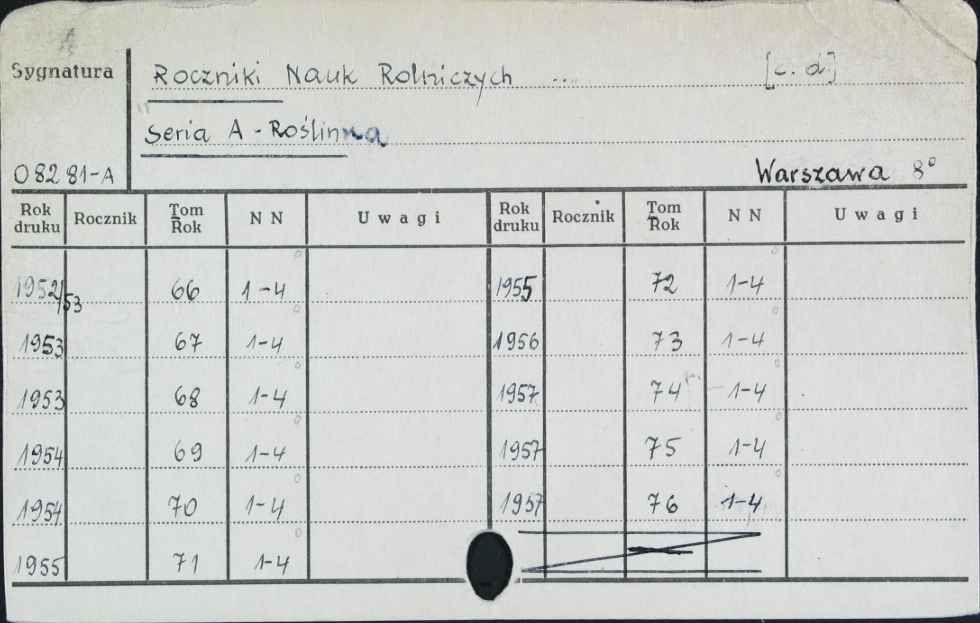 Sygnatura
Roczniki Nauk Rolniczych ... [c. d.]
Seria A - Roślinna
O 8281-A
Warszawa 8°
Rok druku Rocznik Tom Rok N N Uwagi Rok druku Rocznik Tom Rok N N Uwagi
1952/53 66 1-4 1955 72 1-4
1953 67 1-4 1956 73 1-4
1953 68 1-4 1957 74 1-4
1954 69 1-4 1957 75 1-4
1954 70 1-4 1957 76 1-4
1955 71 1-4